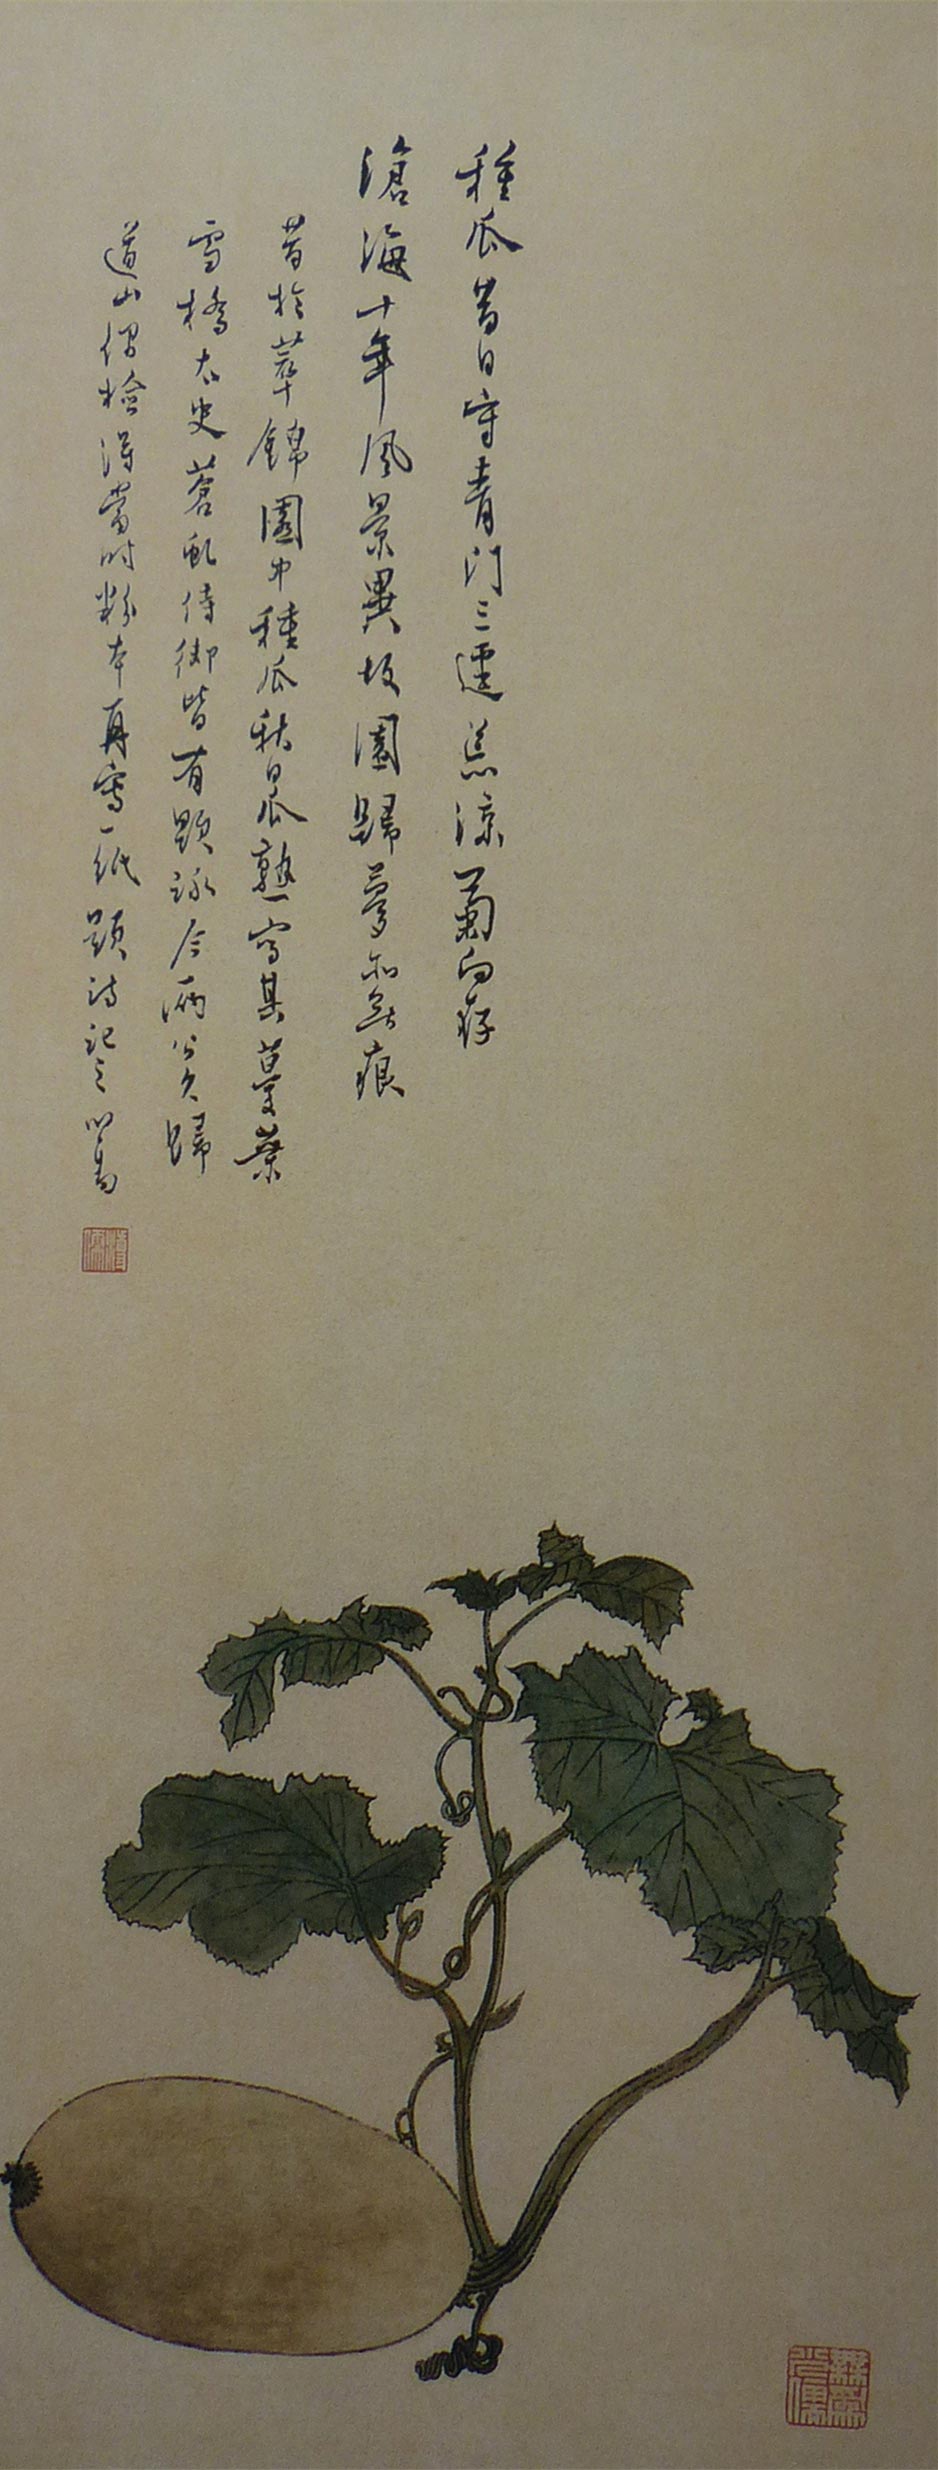 種瓜昔日守青門三逕荒涼菊尚存
滄海十年風景異故園歸夢亦無痕
昔於萃錦園中種瓜秋日瓜熟寫其蔓葉
雪橋太史蒼虬侍御皆有題詠今兩公久歸
道山偶檢得當時粉本再寫一紙題詩記之心畬
溥儒